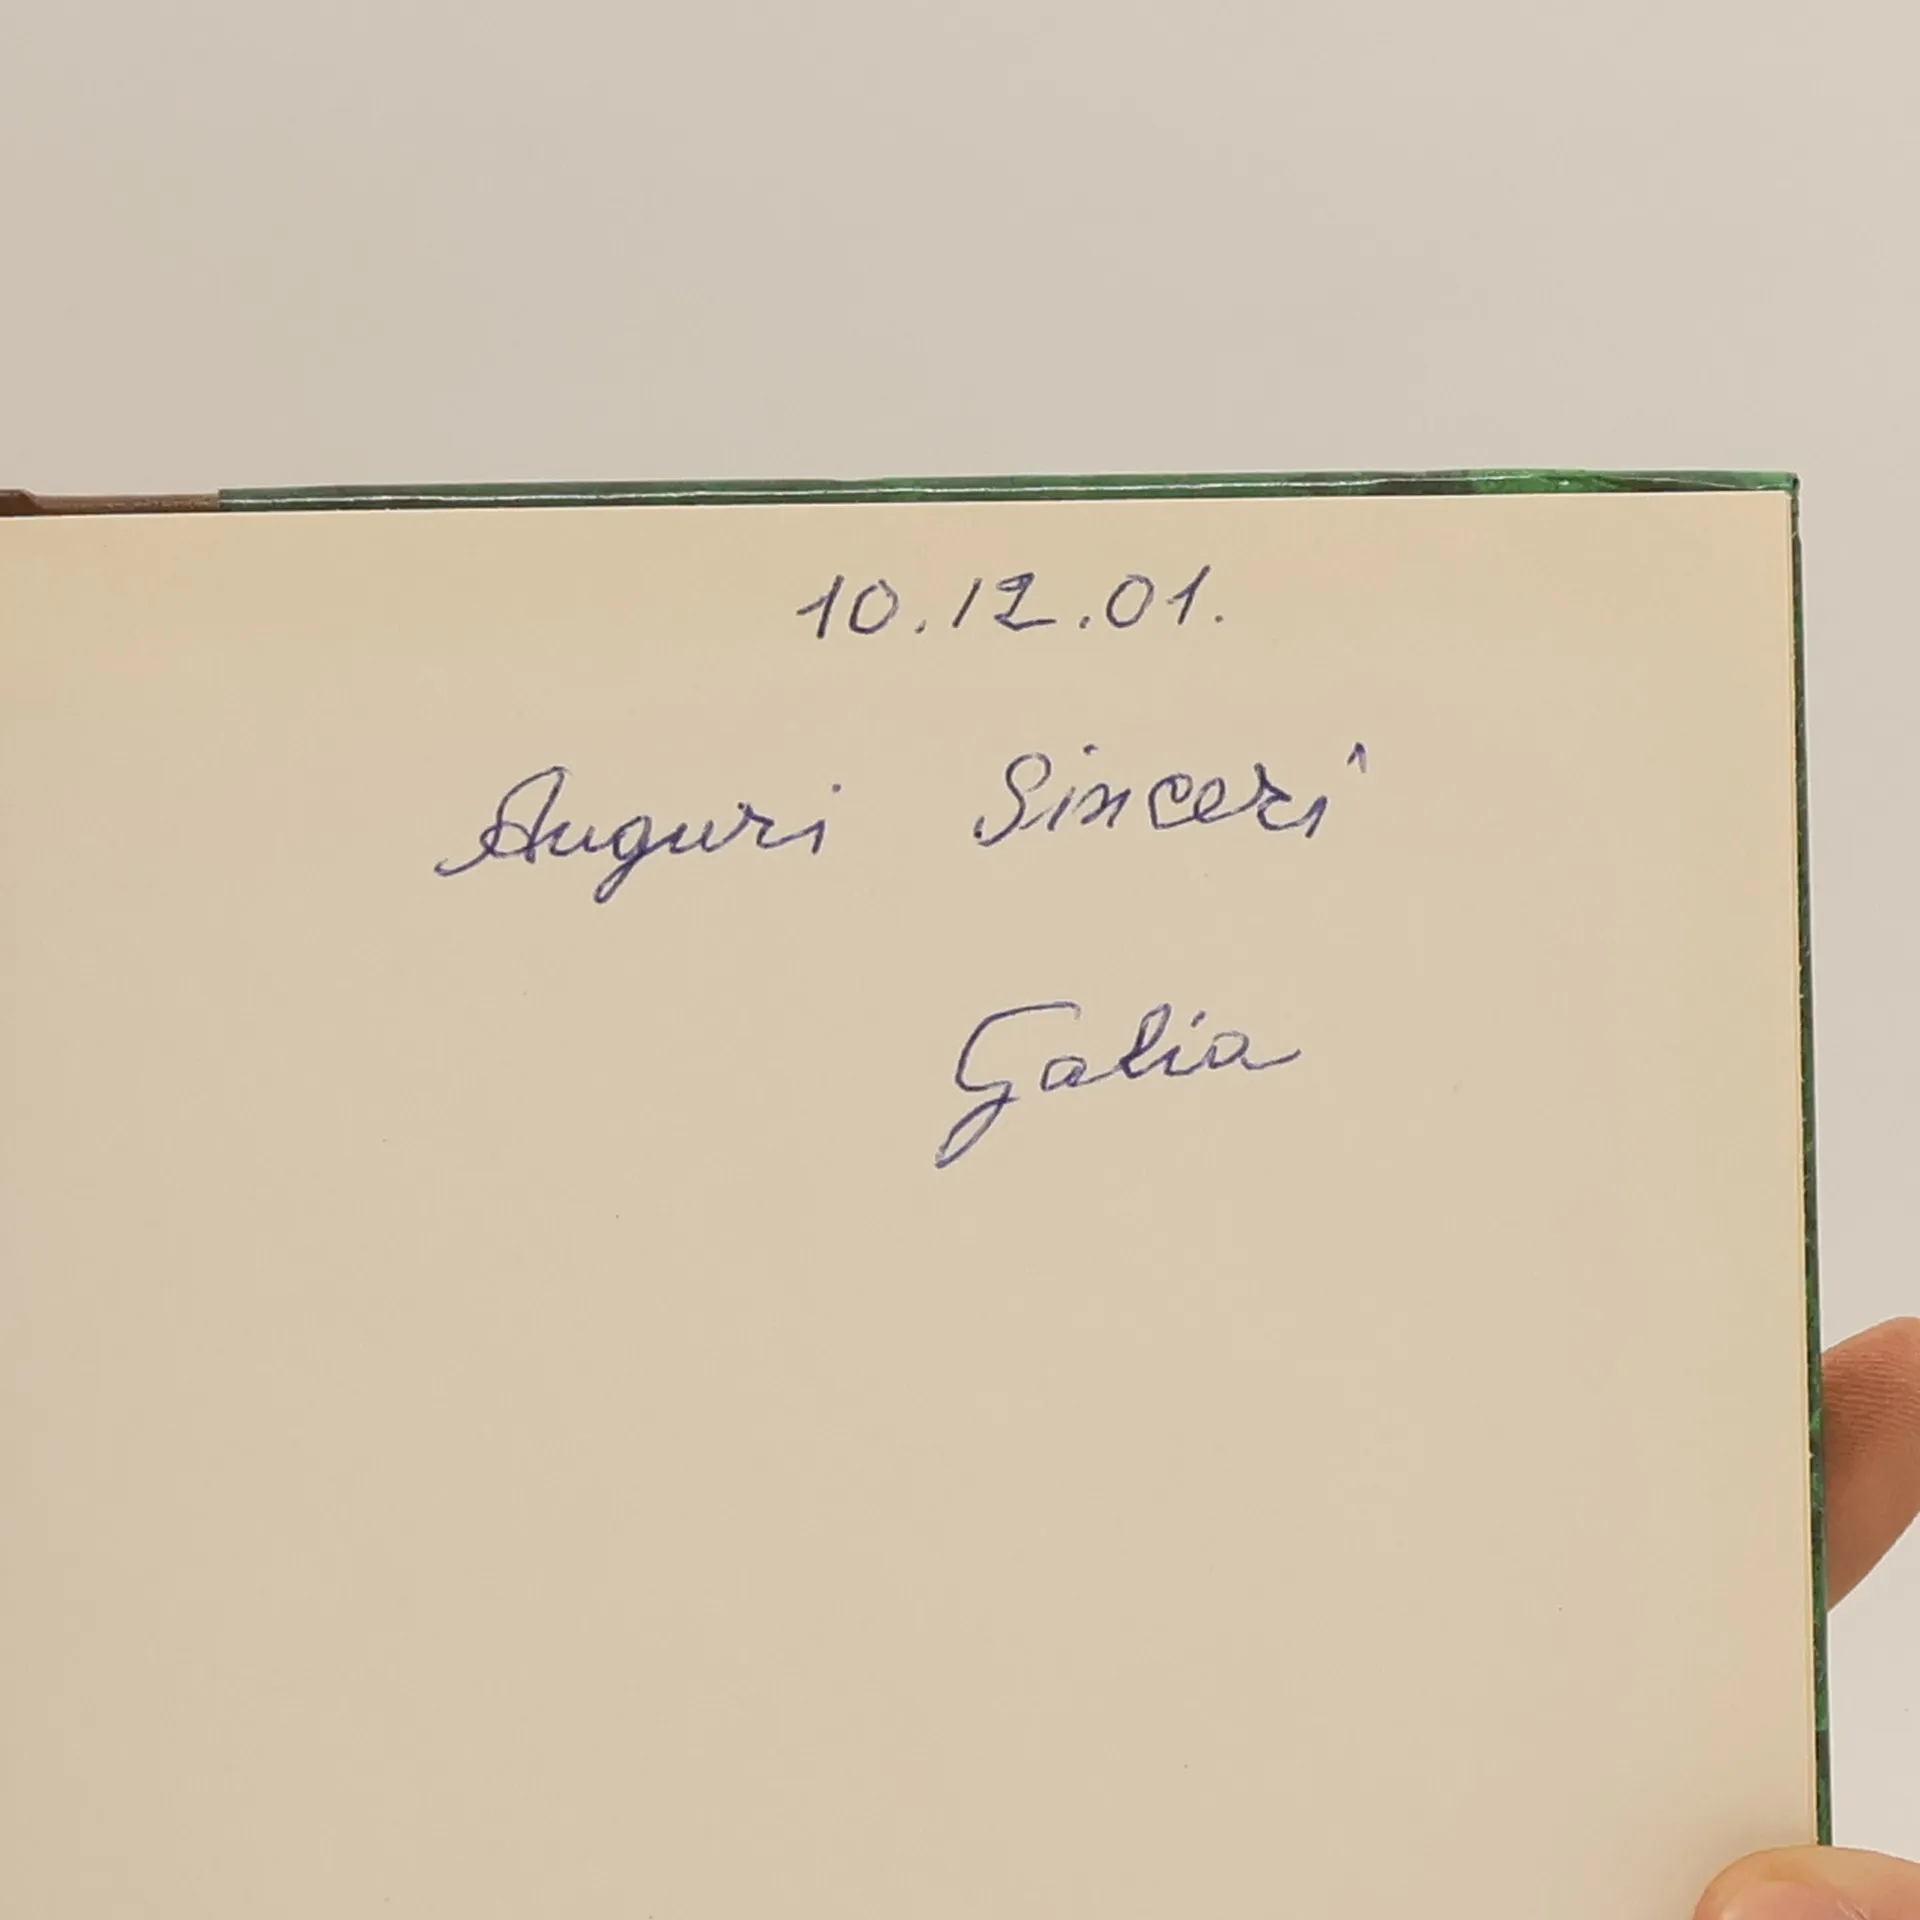 10.12.01.
Auguri Sinceri
Galia